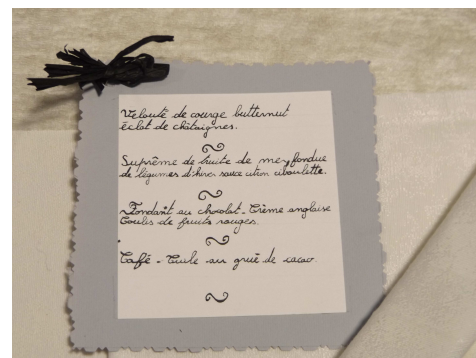 Velouté de courge butternut
éclat de châtaignes.
Suprême de truite de mer, fondue
de légumes d'hiver sauce citron ciboulette.
Fondant au chocolat - Crème anglaise
Coulis de fruits rouges.
Café - Tuile au grué de cacao